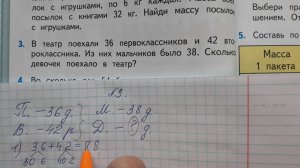 лок с игрушками, по 6 кг каждая.
лок с книгами 32 кг. Найди массу посылок
с игрушками.
3. В театр поехали 36 первоклассников и 42 второклассника. Из них мальчиков было 38. Сколько
девочек поехало в театр?
4.
Выбери
шением.
5. Составь по
Масса
1 пакета
№3.
П. – 36 д. М. – 38 д
В. – 42 р. Д. – ? д
1) 36+42=78
30 6 40 2